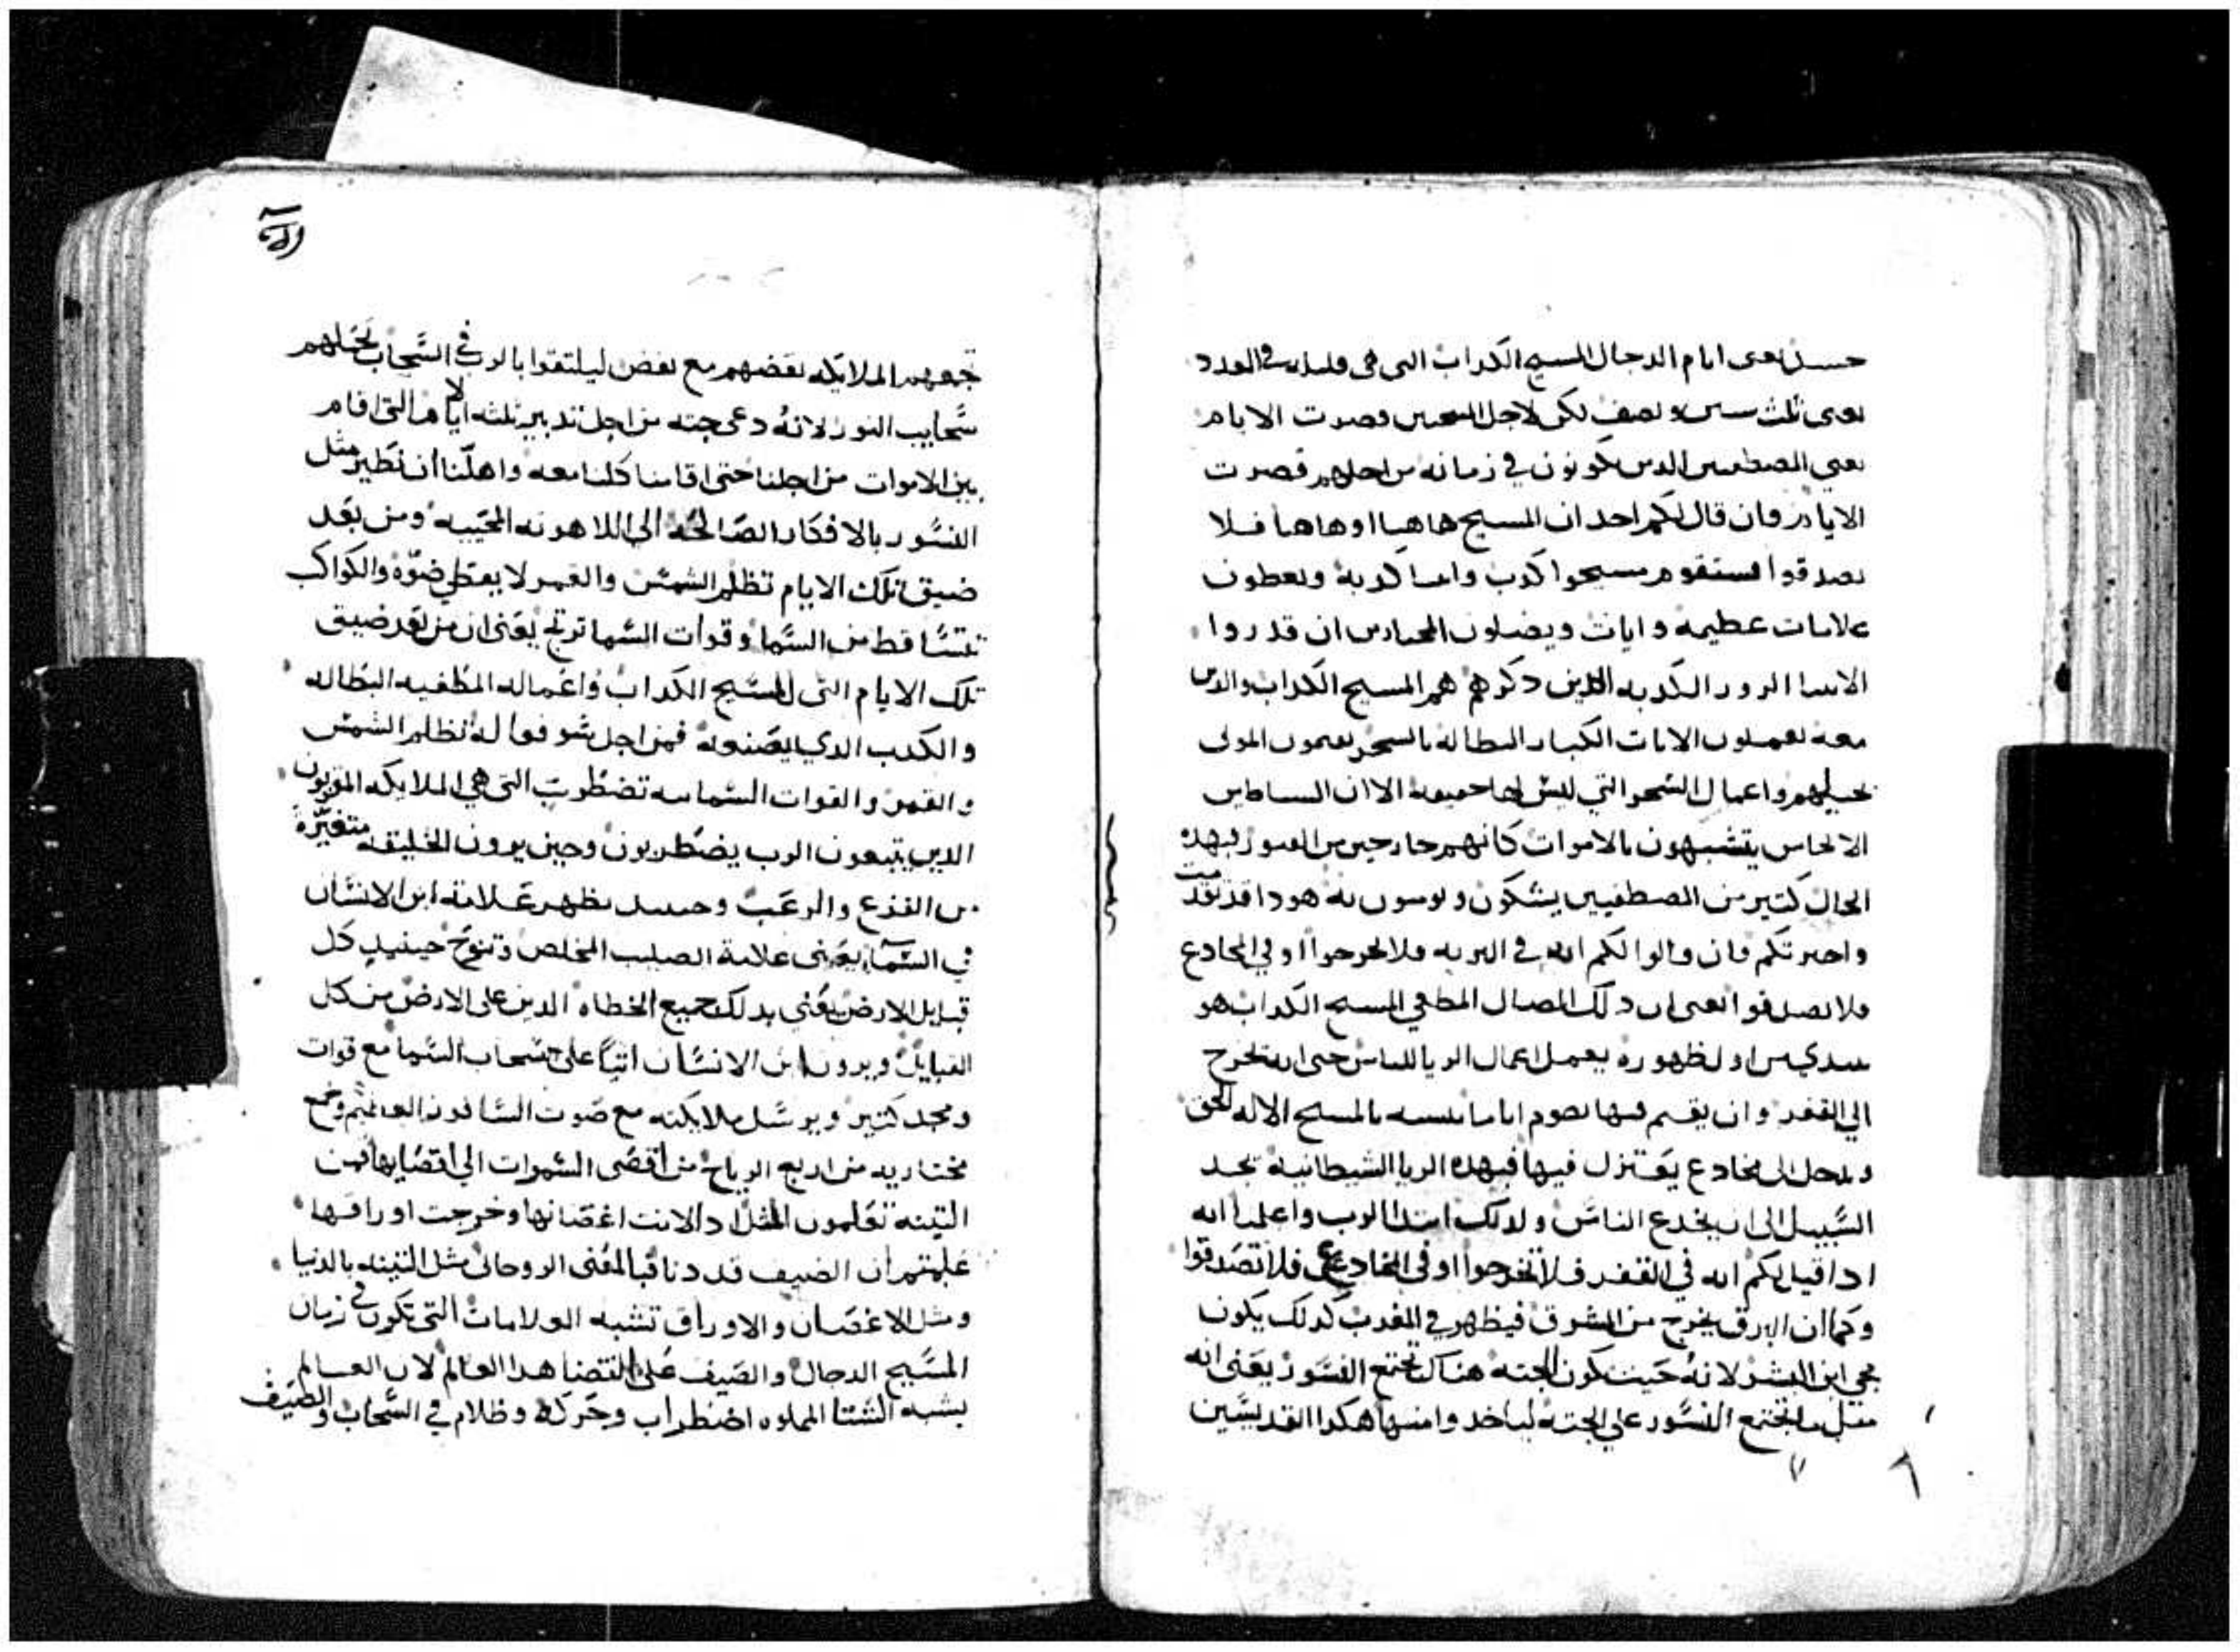 حسد يعنى ايام الدجال المسيح الكداب التى هى قليله فى العدد
يعنى ثلث سنين ونصف لكن لاجل المنتجبين قصرت الايام
يعنى المصطفين الدين يكونون في زمانه من اجلهم قصرت
الايام فان قال لكم احد ان المسيح هاهنا او هاهنا فلا
تصدقوا فستقوم مسيحوا كدب وانبيا كدبه ويعطون
علامات عظيمه وايات ويضلون المختارين ان قدروا
الانبيا الزور الكدبه الدين دكرهم هم المسيح الكداب والدين
معه يعملون الايات الكبار البطاله بالسحر يقيمون الموتى
بحيلهم واعمال السحر التي ليس لها حقيقة الا ان الشياطين
الانجاس يتشبهون بالاموات كانهم خارجين من القبور فبهده
الحال كتير من المصطفيين يشكون ويومنون به هودا قد تقدمت
واخبرتكم فان قالوا لكم انه في البريه فلا تخرجوا او في المخادع
فلا تصدقوا يعنى ان دلك المضال المطغي المسيح الكداب هو
يبتدي من اول ظهوره يعمل اعمال الريا للناس حتى انه يخرج
الي القفر وان يقيم فيها يصوم اياما يتشبه بالمسيح الاله الحق
ويدخل الى مخادع يعتزل فيها فبهده الريا الشيطانية يجد
السبيل الى ان يخدع الناس ولدلك ابتدا الرب واعلمنا انه
ادا قيل لكم انه في القفر فلا تخرجوا او في المخادع فلا تصدقوا
وكما ان البرق يخرج من المشرق فيظهر في المغرب كدلك يكون
مجي ابن البشر لانه حيت تكون الجته هناك تجتمع النسور يعنى انه
مثل ما تجتمع النسور على الجته لياخد وا منها هكدا القديسين
تجمعهم الملايكه بعضهم مع بعض ليلتقوا بالرب في السحاب تحملهم
سحايب النور لانه دعى جته من اجل تدبير ثلثه ايام التى اقام
بين الاموات من اجلنا حتى اقامنا كلنا معه واهلنا ان نطير مثل
النسور بالافكار الصالحة الي اللاهوته المحييه ومن بعد
ضيق تلك الايام تظلم الشمس والقمر لا يعطي ضوّه والكواكب
تتساقط من السما وقوات السما ترتج يعنى ان من بعد ضيق
تلك الايام التى للمسيح الكداب واعماله المطغيه البطاله
والكدب الدي يصنعه فمن اجل شوفوا له تظلم الشمس
والقمر والقوات السماييه تضطرب التى هي الملايكه المقربون
الدين يتبعون الرب يضطربون وحين يرون الخليقه متغيرة
من الفزع والرعب وحينيد يظهر علامة ابن الانسان
في السما يعنى علامة الصليب المخلص وتنوح حينيد كل
قبايل الارض يعنى بدلك جميع الخطاه الدين على الارض من كل
القبايل ويرون ابن الانسان اتيًا على سحاب السما مع قوات
ومجد كتير ويرسل ملايكته مع صوت السافور العظيم وتجمع
مختاريه من اربع الرياح من اقصى السموات الى اقصايها فمن
التينه تعلمون المثل ادا لانت اغصانها وخرجت اوراقها
علمتم ان الصيف قد دنا قبالمعنى الروحانى مثل التينه بالدنيا
ومثل الاغصان والاوراق تشبه العلامات التى تكون في زمان
المسيح الدجال والصيف على انقضا هدا العالم لان العالم
يشبه الشتا المملوه اضطراب وحركة وظلام في السحاب والصيف